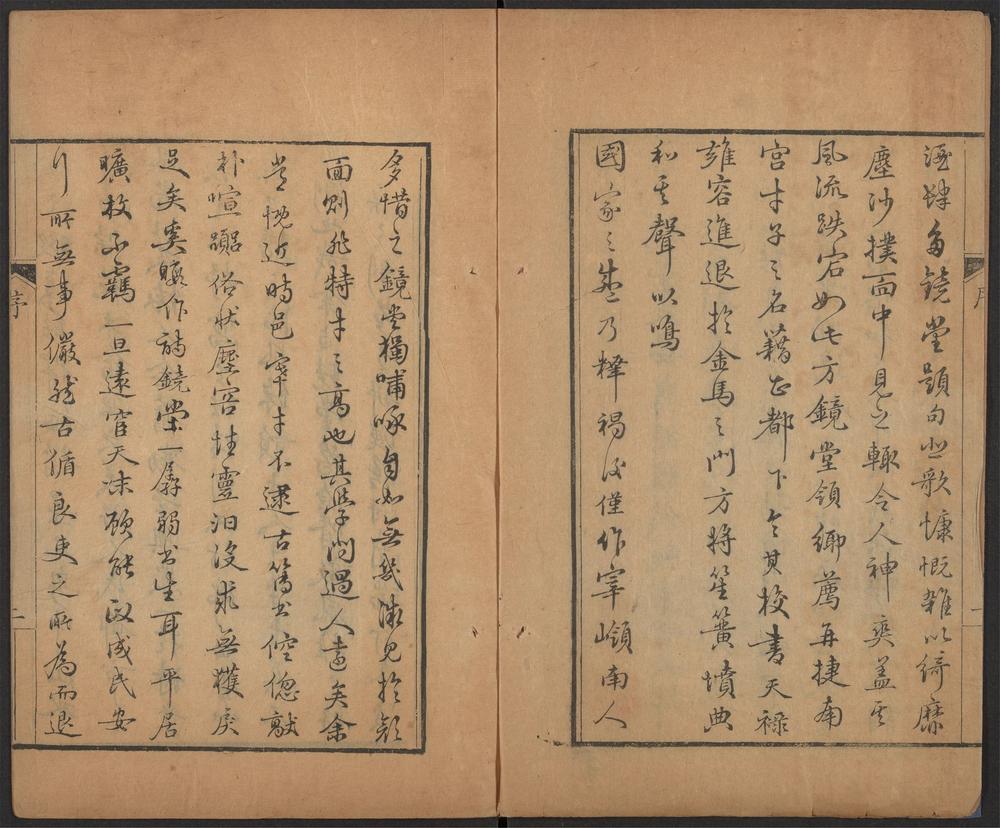 酒肆多鏡堂題句悲歌慷慨雜以綺靡
塵沙撲面中見之輙令人神爽蓋其
風流跌宕如此方鏡堂領鄉薦再捷南
宮才子之名藉甚都下令其校書天祿
雍容進退於金馬之門方將笙簧墳典
和其聲以鳴
國家之盛乃釋褐後僅作宰嶺南人
多惜之鏡堂獨嘯咏自如無幾微見於顏
面則非特才之高也其學問過人遠矣余
嘗慨近時邑宰才不逮古簿書倥偬敲
朴喧囂俗狀塵容性靈汩沒求無獲戾
足矣奚暇作詩鏡堂一孱弱書生耳平居
曠放不羈一旦遠宦天末顧能政成民安
行所無事儼然古循良吏之所為而退
序
二